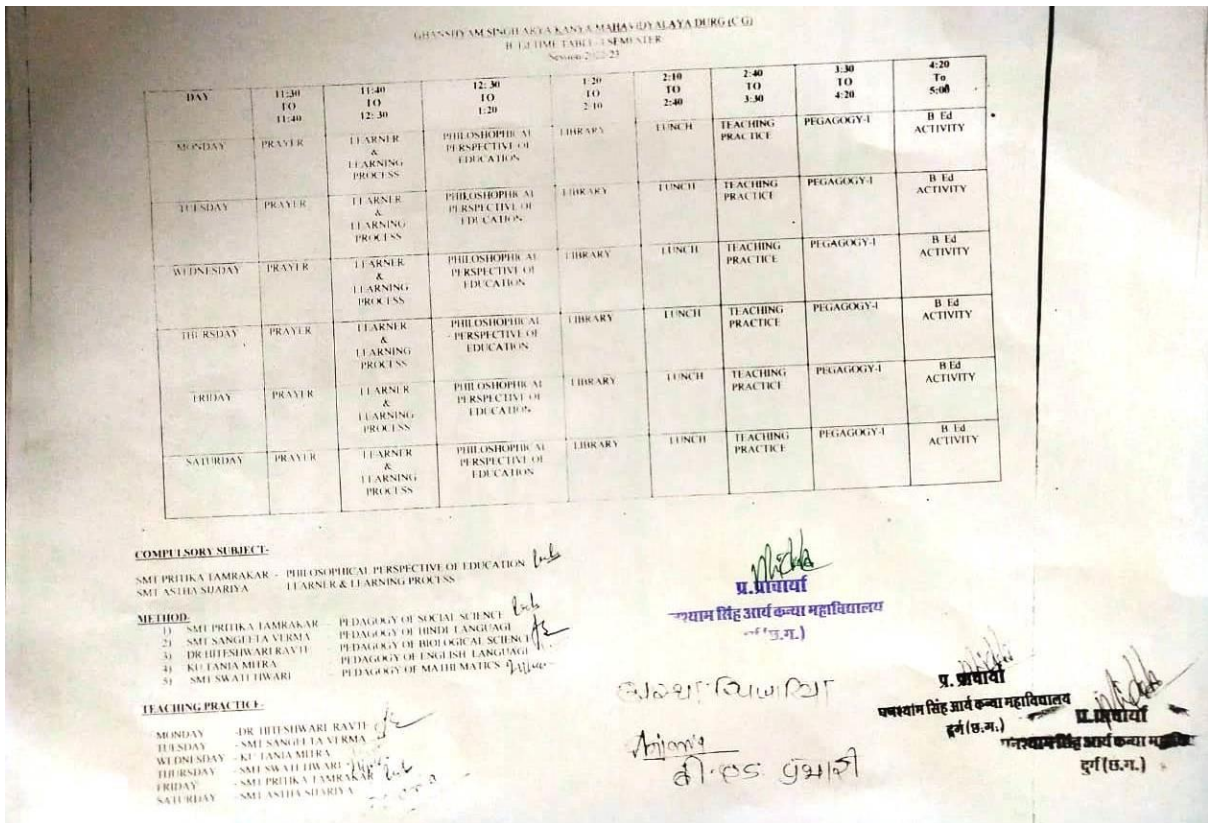 GHANSHYAM SINGH ARYA KANYA MAHAVIDYALAYA DURG (C G)
B. Ed TIME TABLE - I SEMESTER
Session 2022-23
DAY 11:30 TO 11:40 11:40 TO 12: 30 12: 30 TO 1:20 1:20 TO 2:10 2:10 TO 2:40 2:40 TO 3:30 3:30 TO 4:20 4:20 To 5:00
MONDAY PRAYER LEARNER & LEARNING PROCESS PHILOSHOPHICAL PERSPECTIVE OF EDUCATION LIBRARY LUNCH TEACHING PRACTICE PEGAGOGY-I B Ed ACTIVITY
TUESDAY PRAYER LEARNER & LEARNING PROCESS PHILOSHOPHICAL PERSPECTIVE OF EDUCATION LIBRARY LUNCH TEACHING PRACTICE PEGAGOGY-I B Ed ACTIVITY
WEDNESDAY PRAYER LEARNER & LEARNING PROCESS PHILOSHOPHICAL PERSPECTIVE OF EDUCATION LIBRARY LUNCH TEACHING PRACTICE PEGAGOGY-I B Ed ACTIVITY
THURSDAY PRAYER LEARNER & LEARNING PROCESS PHILOSHOPHICAL PERSPECTIVE OF EDUCATION LIBRARY LUNCH TEACHING PRACTICE PEGAGOGY-I B Ed ACTIVITY
FRIDAY PRAYER LEARNER & LEARNING PROCESS PHILOSHOPHICAL PERSPECTIVE OF EDUCATION LIBRARY LUNCH TEACHING PRACTICE PEGAGOGY-I B Ed ACTIVITY
SATURDAY PRAYER LEARNER & LEARNING PROCESS PHILOSHOPHICAL PERSPECTIVE OF EDUCATION LIBRARY LUNCH TEACHING PRACTICE PEGAGOGY-I B Ed ACTIVITY
COMPULSORY SUBJECT-
SMT PRITIKA TAMRAKAR - PHILOSOPHICAL PERSPECTIVE OF EDUCATION
SMT ASTHA SIJARIYA LEARNER & LEARNING PROCESS
METHOD-
1) SMT PRITIKA TAMRAKAR - PEDAGOGY OF SOCIAL SCIENCE
2) SMT SANGEETA VERMA - PEDAGOGY OF HINDI LANGUAGE
3) DR HITESHWARI RAVTE - PEDAGOGY OF BIOLOGICAL SCIENCE
4) KU TANIA MITRA - PEDAGOGY OF ENGLISH LANGUAGE
5) SMT SWATI TIWARI - PEDAGOGY OF MATHEMATICS
TEACHING PRACTICE-
MONDAY -DR HITESHWARI RAVTE
TUESDAY - SMT SANGEETA VERMA
WEDNESDAY - KU TANIA MITRA
THURSDAY - SMT SWATI TIWARI
FRIDAY - SMT PRITIKA TAMRAKAR
SATURDAY - SMT ASTHA SIJARIYA
प्र.प्राचार्या
घनश्याम सिंह आर्य कन्या महाविद्यालय
(छ.ग.)
बी.एड प्रभारी
प्र. प्राचार्या
घनश्याम सिंह आर्य कन्या महाविद्यालय
दुर्ग (छ.ग.)
प्र.प्राचार्या
घनश्याम सिंह आर्य कन्या
दुर्ग (छ.ग.)